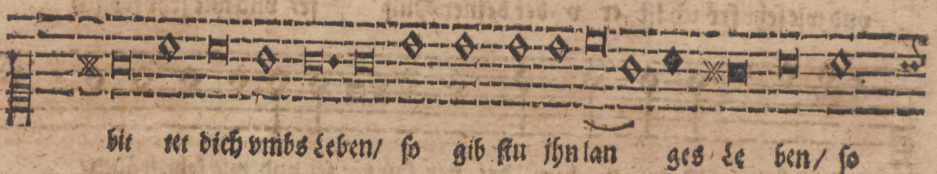 bit tet dich vmbs Leben/ so gib stu jhn lan ges Le ben/ so